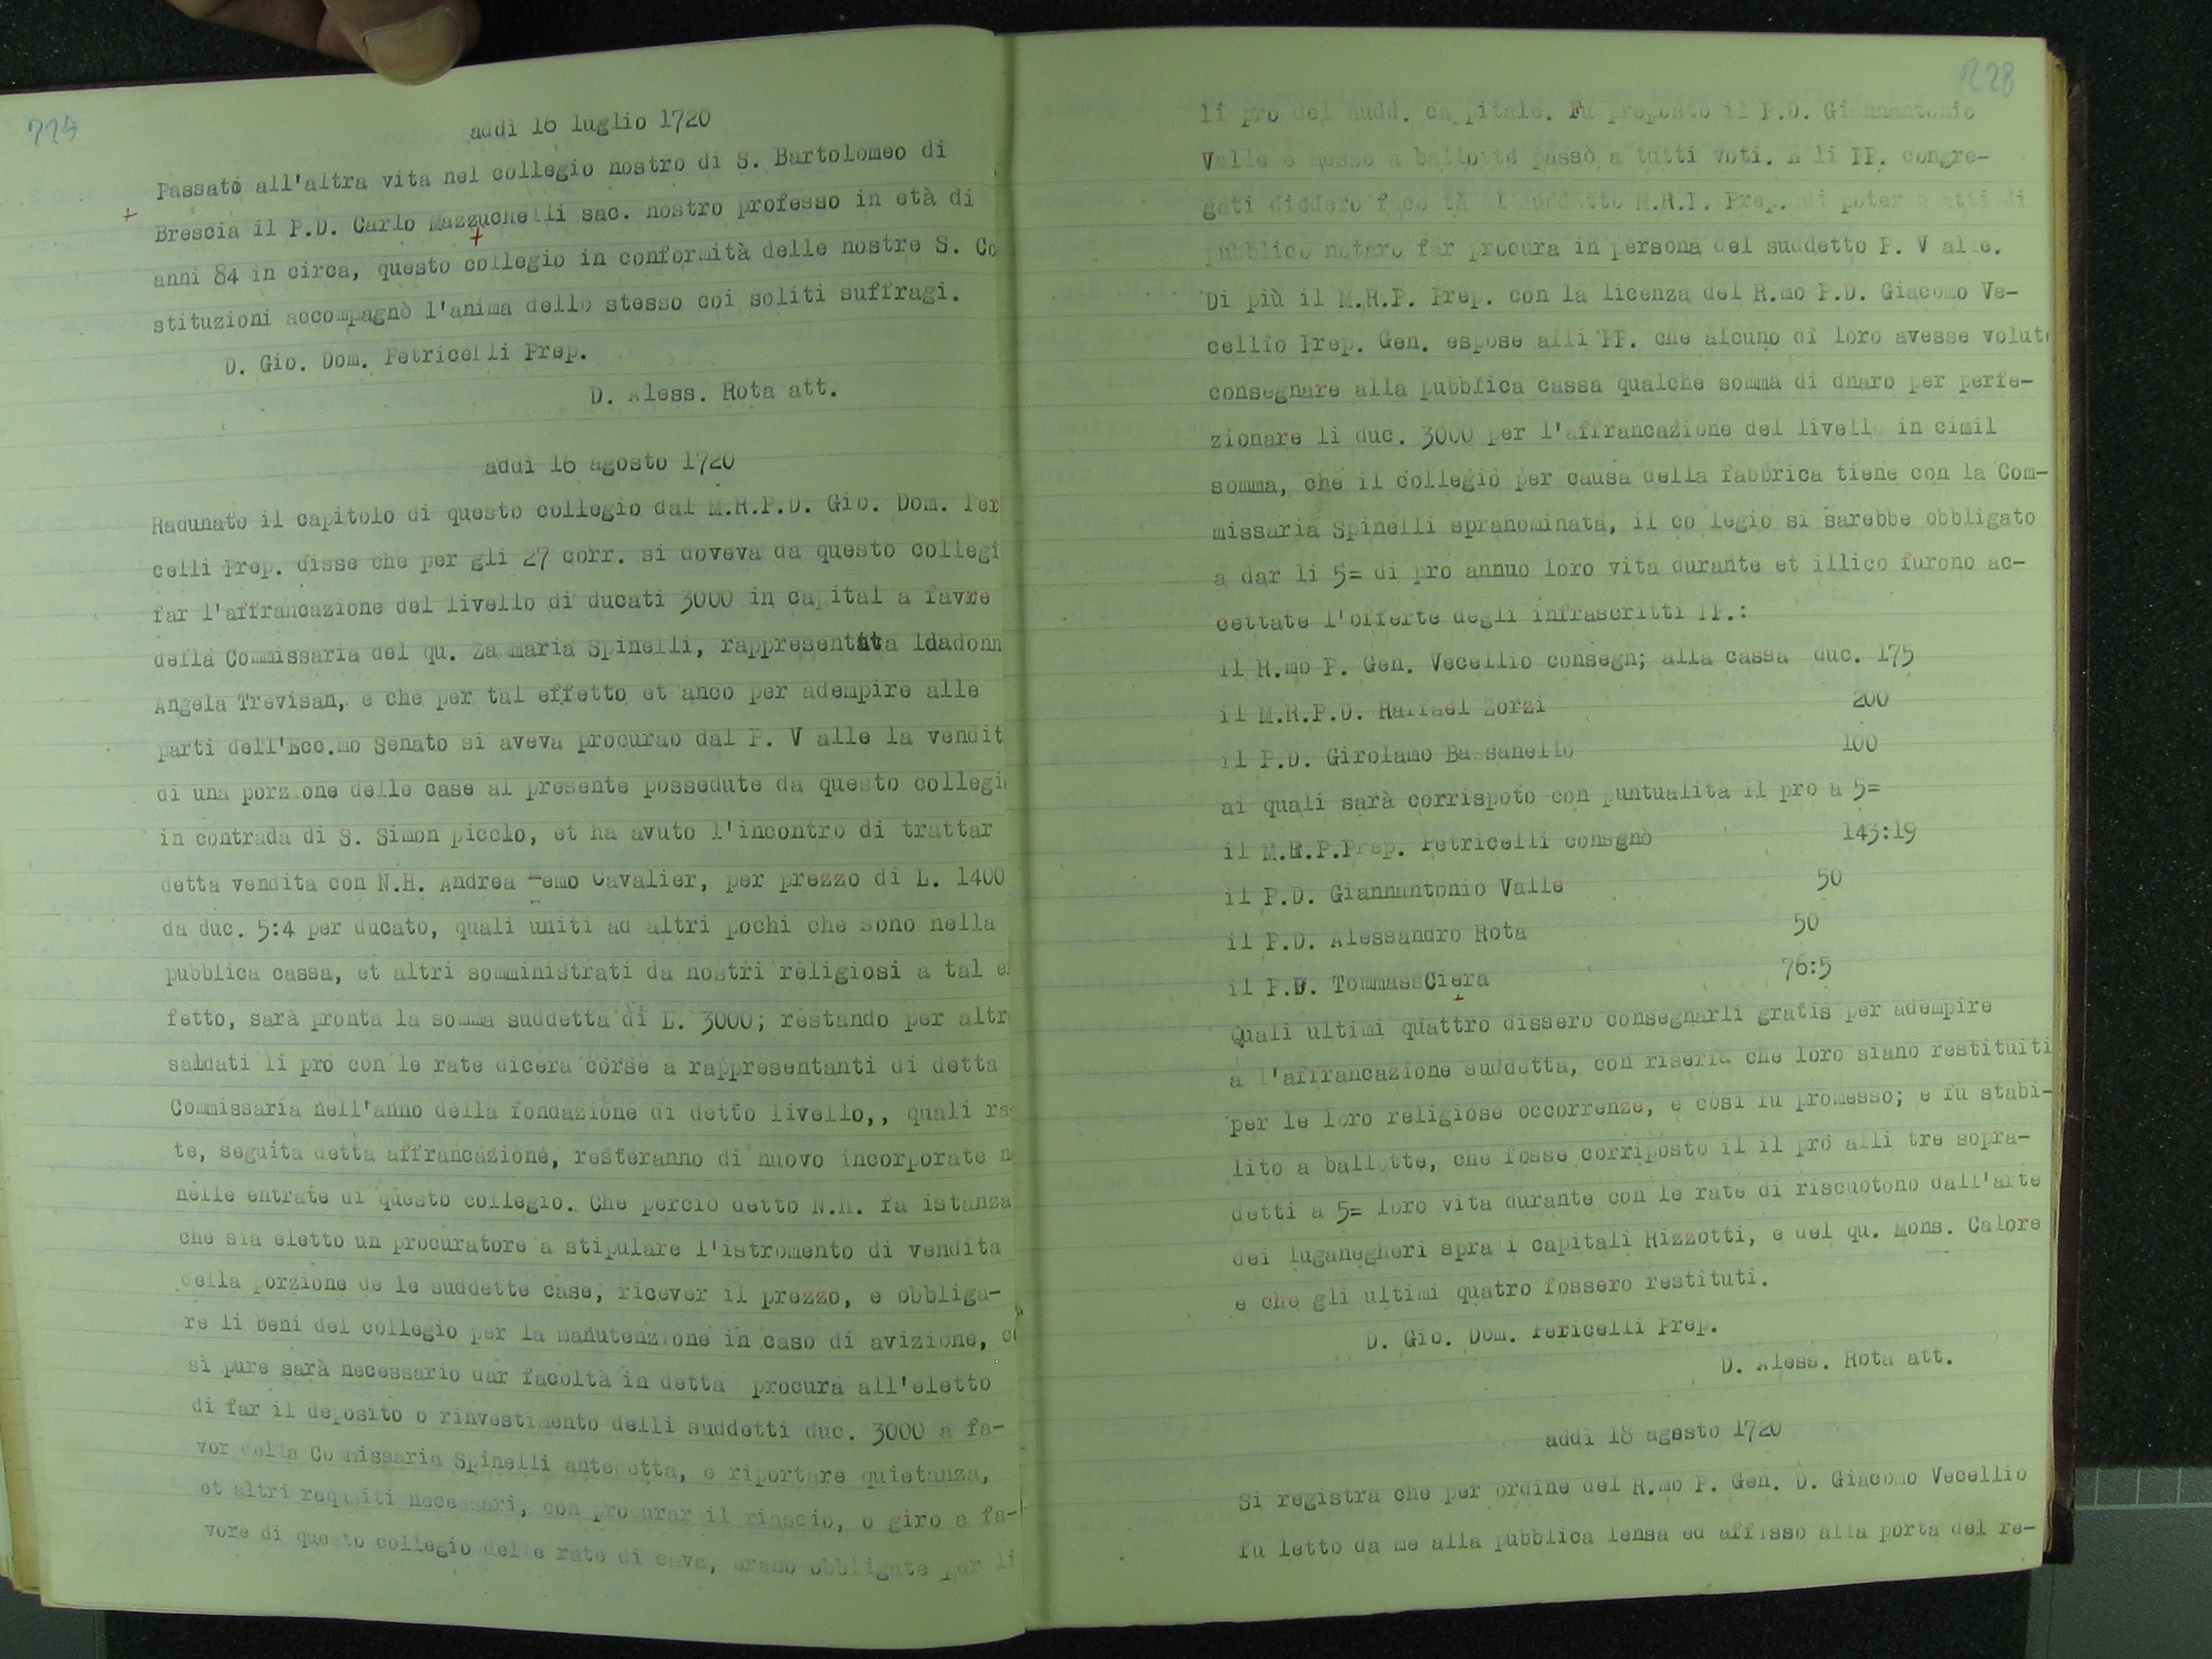 227
addì 16 luglio 1720
Passato all'altra vita nel collegio nostro di S. Bartolomeo di
Brescia il P.D. Carlo Mazzuchelli sac. nostro professo in età di
anni 84 in circa, questo collegio in conformità delle nostre S. Co
stituzioni accompagnò l'anima dello stesso coi soliti suffragi.
D. Gio. Dom. Petricelli Prep.
D. Aless. Rota att.
addì 16 agosto 1720
Radunato il capitolo di questo collegio dal M.R.P.D. Gio. Dom. Per
celli Prep. disse che per gli 27 corr. si doveva da questo collegi
far l'affrancazione del livello di ducati 3000 in capital a favre
della Commissaria del qu. Za maria Spinelli, rappresentata
Angela Trevisan, e che per tal effetto et anco per adempire alle
parti dell'Ecc.mo Senato si aveva procurao dal P. V alle la vendit
di una porzione delle case al presente possedute da questo collegi
in contrada di S. Simon picclo, et ha avuto l'incontro di trattar
detta vendita con N.H. Andrea emo Cavalier, per prezzo di L. 1400
da duc. 5:4 per ducato, quali uniti ad altri pochi che sono nella
pubblica cassa, et altri somministrati da nostri religiosi a tal ef
fetto, sarà pronta la somma suddetta di L. 3000; restando per altr
saldati li pro con le rate dicera corse a rappresentanti di detta
Commissaria nell'anno della fondazione di detto livello,, quali ra
te, seguita detta affrancazione, resteranno di nuovo incorporate n
nelle entrate di questo collegio. Che perciò detto N.H. fa istanza
che sia eletto un procuratore a stipulare l'istromento di vendita
della porzione de le suddette case, ricever il prezzo, e obbliga-
re li beni del collegio per la manutenzione in caso di avizione, co
sì pure sarà necessario dar facoltà in detta procura all'eletto
di far il deposito o rinvestimento delli suddetti duc. 3000 a fa-
vor della Commissaria Spinelli antedetta, o riportare quietanza,
et altri requsiti necessari, con procurar il riascio, o giro a fa-
vore di questo collegio delle rate di cava, erano obbligate per li
228
li pro del sudd. ca pitale. Fu proposto il P.D. Giannantonio
Valle e messo a ballotte passò a tutti voti. E li PP. congre-
gati diedero faco tà al suddetto M.R.P. Prep. di poter n atti di
pubblico notaro far procura in persona del suddetto P. V alle.
Di più il M.R.P. Prep. con la licenza del R.mo P.D. Giacomo Ve-
cellio Prep. Gen. espose alli PP. che alcuno di loro avesse volut
consegnare alla pubblica cassa qualche somma di dnaro per perfe-
zionare li duc. 3000 per l'affrancazione del livello in cimil
somma, che il collegio per causa della fabbrica tiene con la Com-
missaria Spinelli spranominata, il co legio si sarebbe obbligato
a dar li 5= di pro annuo loro vita durante et illico furono ac-
cettate l'offerte degli infrascritti PP.:
il R.mo P. Gen. Vecellio consegn; alla cassa duc. 175
il M.R.P.D. Raffael Zorzi 200
il P.D. Girolamo Bassanello 100
ai quali sarà corrispoto con puntualità il pro a 5=
il M.R.P.Prep. Petricelli consgnò 143:19
il P.D. Giannantonio Valle 50
il P.D. Alessandro Rota 50
il P.D. TommassCiera 76:5
Quali ultimi quattro dissero consegnarli gratis per adempire
a l'affrancazione suddetta, con riserla che loro siano restituiti
per le loro religiose occorrenze, e così fu promesso; e fu stabi-
lito a ballotte, che fosse corriposto il il pro alli tre sopra-
detti a 5= loro vita durante con le rate di riscuotono dall'arte
dei luganegheri spra i capitali Rizzotti, e del qu. Mons. Calore
e che gli ultimi quatro fossero restituti.
D. Gio. Dom. Pericelli Prep.
D. Aless. Rota att.
addì 18 agosto 1720
Si registra che per ordine del R.mo P. Gen. D. Giacomo Vecellio
fu letto da me alla pubblica lensa ed affisso alla porta del re-